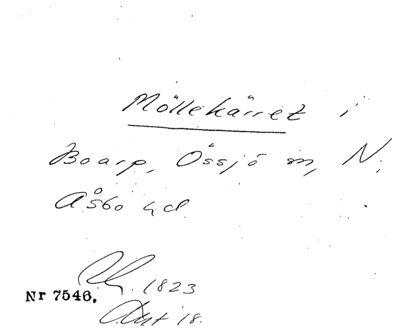 Möllekärret i
Boarp, Össjö sn, N.
Åsbo hd
1823
Nr 7546.
Akt 18.